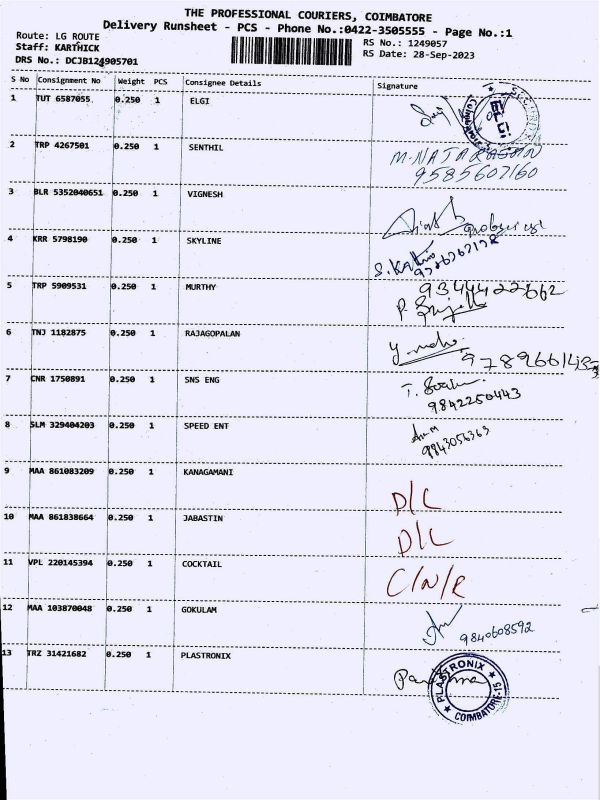 THE PROFESSIONAL COURIERS, COIMBATORE
Delivery Runsheet - PCS - Phone No.:0422-3505555 - Page No.:1
Route: LG ROUTE
Staff: KARTHICK
DRS No.: DCJB124905701
RS No.: 1249057
RS Date: 28-Sep-2023
S No Consignment No Weight PCS Consignee Details Signature
1 TUT 6587055 0.250 1 ELGI
SECURITY ELGi
2 TRP 4267501 0.250 1 SENTHIL M.NATARAJAN
9585607160
3 BLR 5352040651 0.250 1 VIGNESH
4 KRR 5798190 0.250 1 SKYLINE
5 TRP 5909531 0.250 1 MURTHY 9344422662
6 TNJ 1182875 0.250 1 RAJAGOPALAN
7 CNR 1750891 0.250 1 SNS ENG
9842250443
8 SLM 329404203 0.250 1 SPEED ENT
9843056363
9 MAA 861083209 0.250 1 KANAGAMANI D/L
10 MAA 861838664 0.250 1 JABASTIN D/L
11 VPL 220145394 0.250 1 COCKTAIL C/N/R
12 MAA 103870048 0.250 1 GOKULAM 9840608592
13 TRZ 31421682 0.250 1 PLASTRONIX
PLASTRONIX COIMBATORE-15